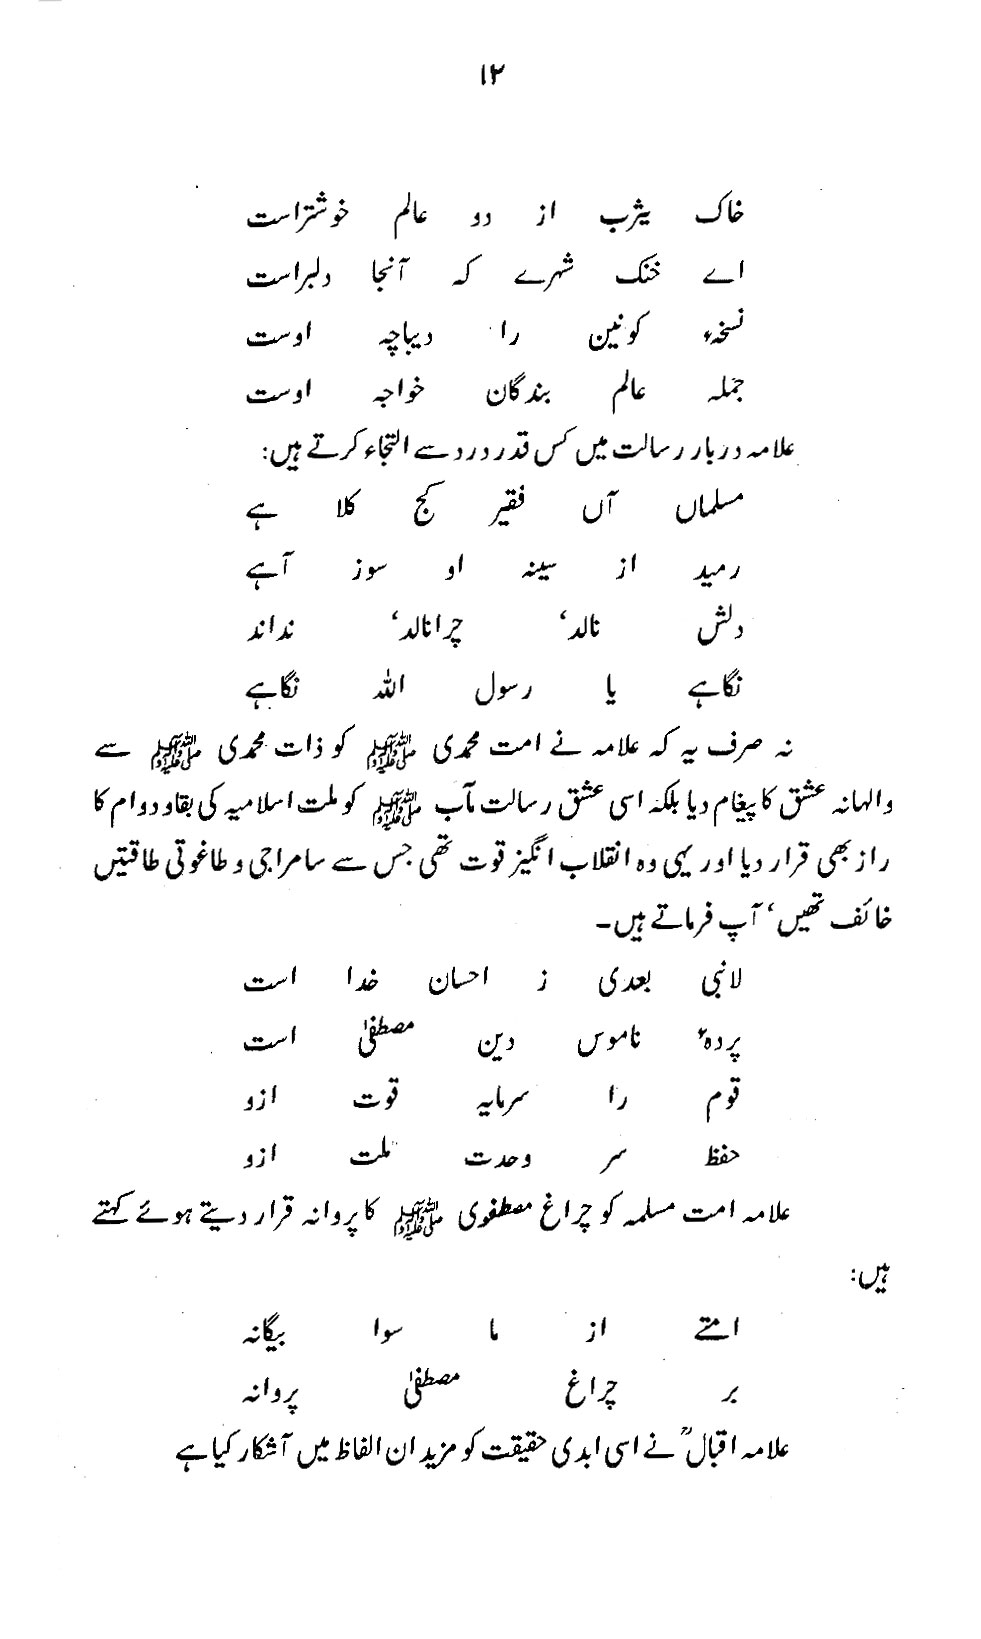 ۱۲
خاک یثرب از دو عالم خوشتراست
اے خنک شہرے کہ آنجا دلبراست
نسخہء کونین را دیباچہ اوست
جملہ عالم بندگان خواجہ اوست
علامہ دربار رسالت میں کس قدر درد سے التجاء کرتے ہیں:
مسلماں آں فقیر کج کلا ہے
رمید از سینہ او سوز آہے
دلش نالد‘ چرانالد‘ نداند
نگاہے یا رسول اللہ نگاہے
نہ صرف یہ کہ علامہ نے امت محمدی ﷺ کو ذات محمدی ﷺ سے
والہانہ عشق کا پیغام دیا بلکہ اسی عشق رسالت مآب ﷺ کو ملت اسلامیہ کی بقاو دوام کا
راز بھی قرار دیا اور یہی وہ انقلاب انگیز قوت تھی جس سے سامراجی و طاغوتی طاقتیں
خائف تھیں‘ آپ فرماتے ہیں۔
لانبی بعدی ز احسان خدا است
پردہء ناموس دین مصطفیٰ است
قوم را سرمایہ قوت ازو
حفظ سر وحدت ملت ازو
علامہ امت مسلمہ کو چراغ مصطفوی ﷺ کا پروانہ قرار دیتے ہوئے کہتے
ہیں:
امتے از ما سوا بیگانہ
بر چراغ مصطفیٰ پروانہ
علامہ اقبالؒ نے اسی ابدی حقیقت کو مزید ان الفاظ میں آشکار کیا ہے